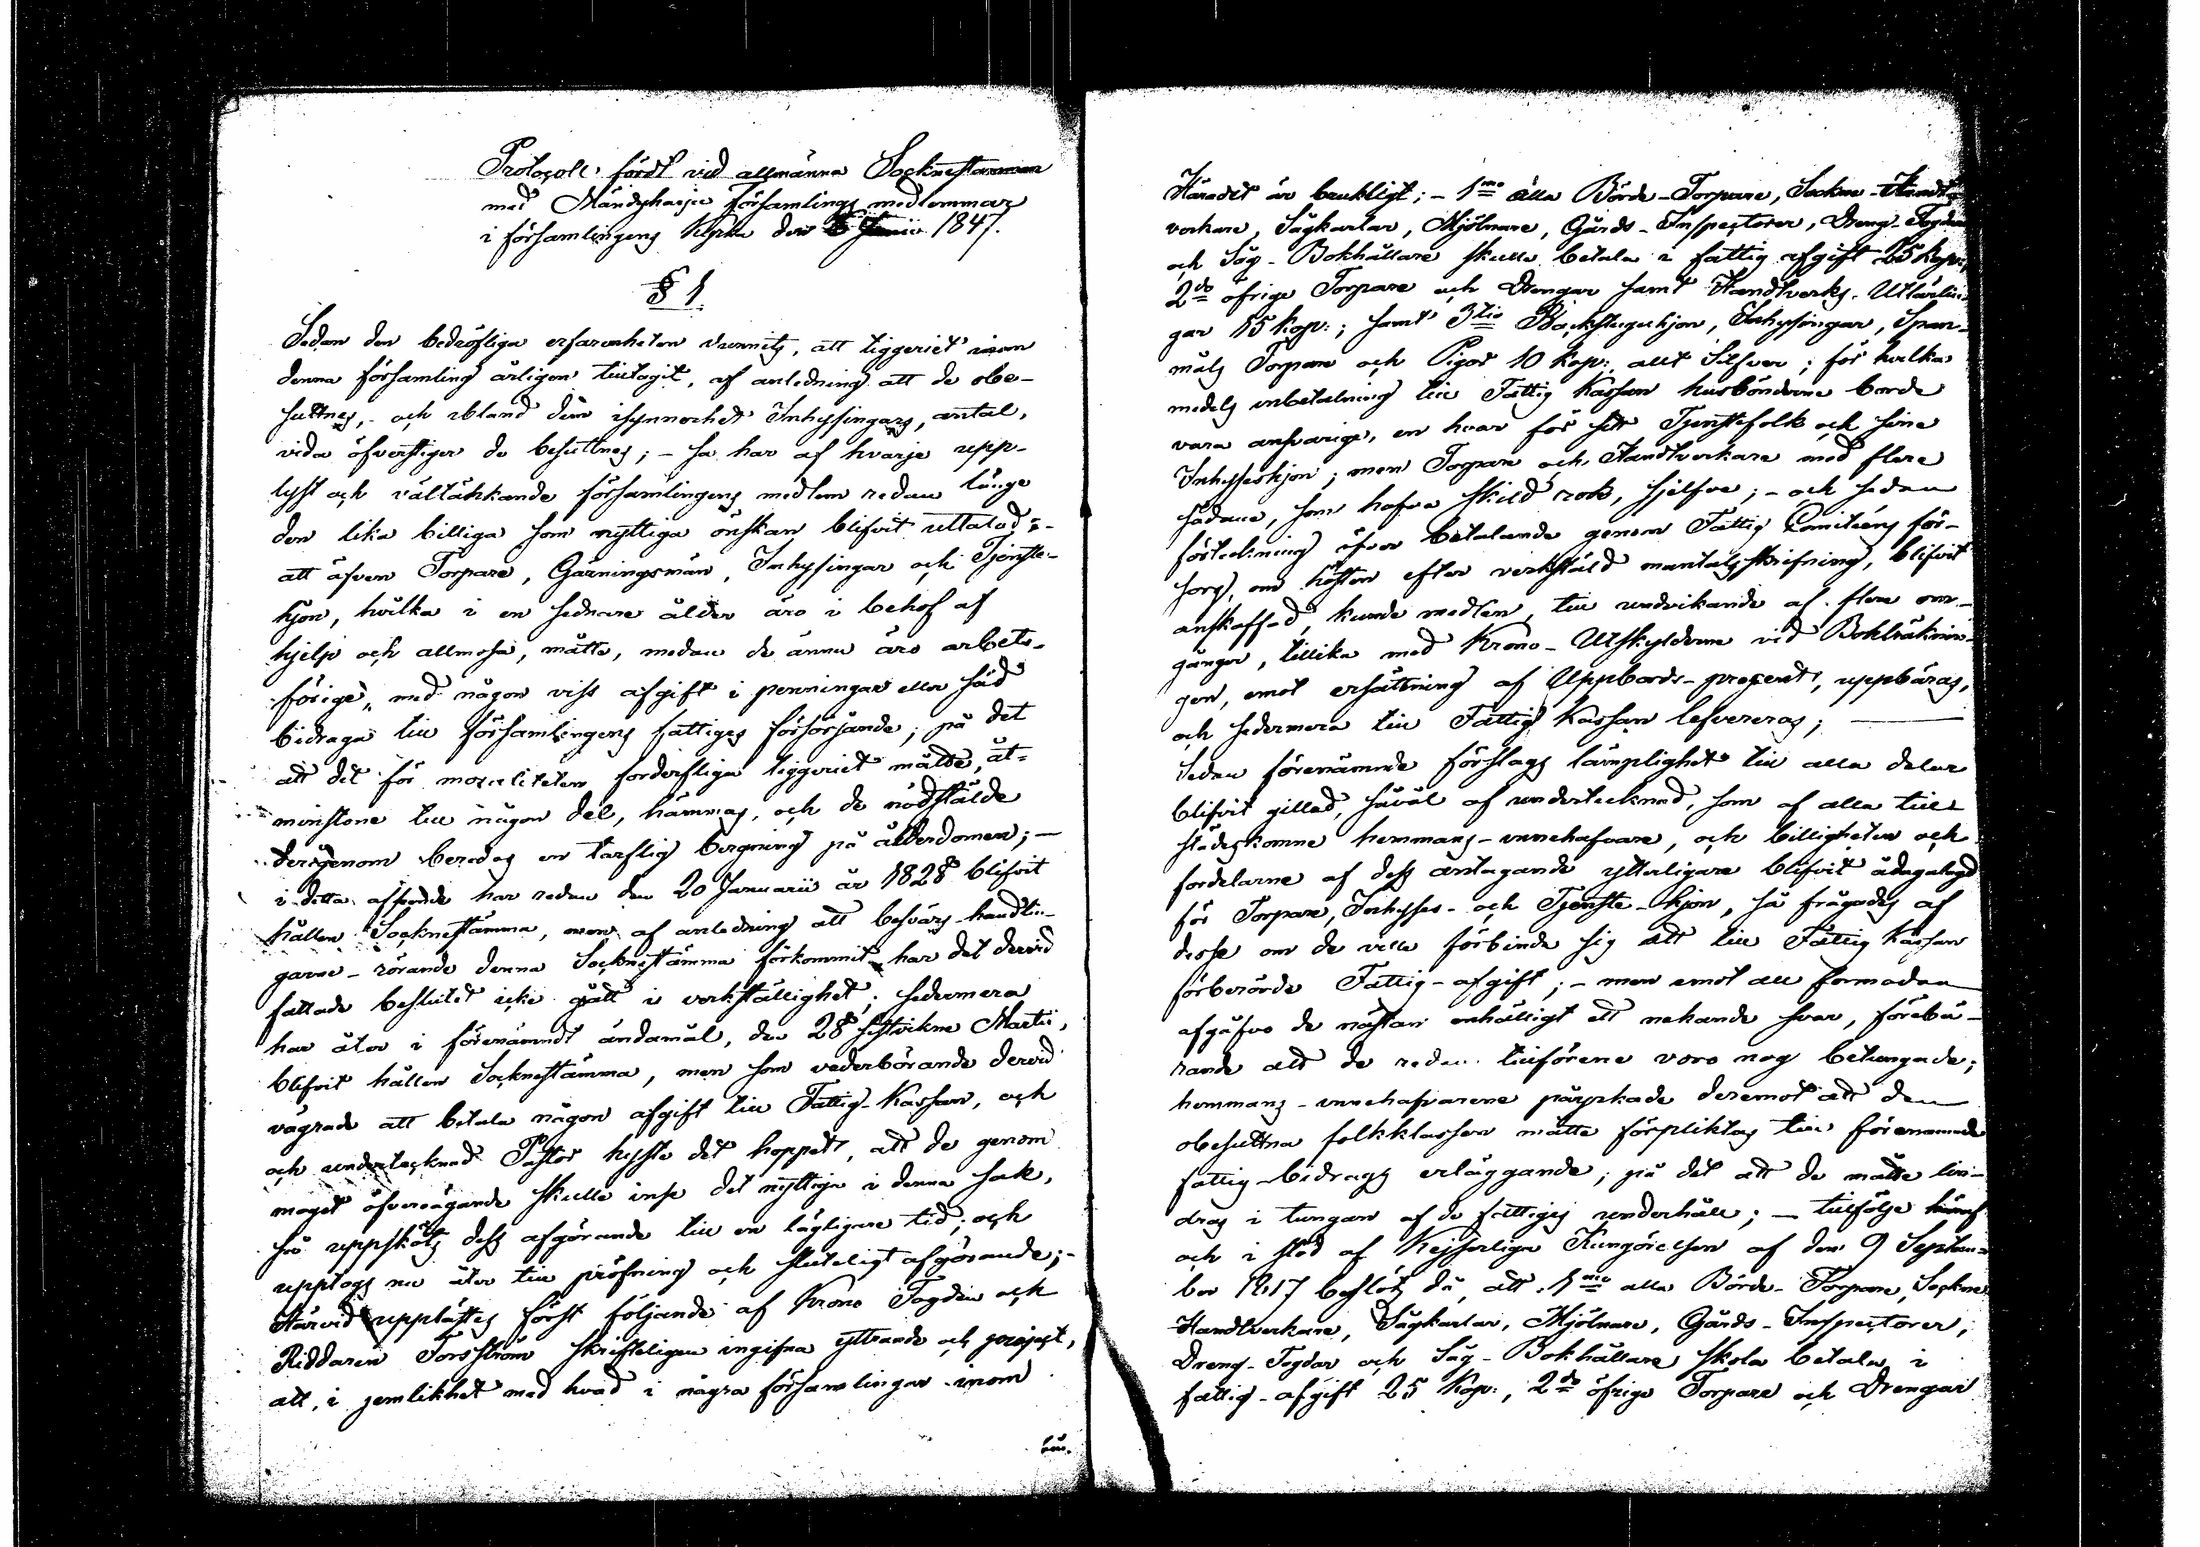 Protocoll fördt vid allmänna Socknestämman
med Mändyharju Församlings medlemmar
i församlingens Kyrka den 6 Junii 1847.
§ 1.
Sedan den bedröfliga erfarenheten vunnits, att tiggeriet inom
denna församling årligen tilltagit, af anledning att de obe-
suttnes, och ibland dem isynnerhet Inhysingars, antal,
vida öfverstiger de besuttnes; - så har af hvarje upp-
lyst och rältänkande församlingens medlem redan länge
den lika billiga som nyttiga önskan blifvit uttalad; -
att äfven Torpare, Gärningsmän, Inhysingar och Tjenste-
hjon, hvilka i en sednare ålder äro i behof af
hjelp och allmosa, måtte, medan de ännu äro arbets-
förige, med någon viss afgift i penningar eller säd
bidraga till församlingens fattiges försörjande; på det
att det för moraliteten forderfliga tiggeriet måtte, åt-
minstone till någon del, hämmas, och de nödstälde
derigenom beredas en tarflig bergning på ålderdomen; -
i detta afseende har redan den 20 Januarii år 1828 blifvit
hållen Socknestämma, men af anledning att besvärs handlin-
garne - rörande denna Socknestämma förkommit har det dervid
fattade beslutet icke gått i verkställighet; sedermera
har åter i förenämndt ändamål, den 28 sistvikne Martii,
blifvit hållen Socknestämma, men som vederbörande dervid
vägrade att betala någon afgift till Fattig-Kassan, och
och undertecknad Pastor hyste det hoppet, att de genom
moget öfvervägande skulle inse det nyttiga i denna sak,
så uppsköts dess afgörande till en lägligare tid; och
upptogs nu åter till pröfning och sluteligt afgörande; -
Härvid upplästes först följande af Krono Fogden och
Riddaren Forsström skrifteligen ingifna yttrande och project,
att, i jemlikhet med hvad i några församlingar inom
Häradet är brukligt; - 1mo alla Börde-Torpare, Sockne-Handt-
verkare, Sågkarlar, Mjölnare, Gårds-Inspectorer, Dreng-Fogdar
och Såg-Bokhållare skulle betala i fattig afgift 25 Kop:,
2do öfrige Torpare och Drengar samt Handtverks-Utlärlin-
gar 15 Kop:; samt 3tio Backstuguhjon, Inhysingar, Span-
måls Torpare och Pigor 10 Kop: allt Silfver; för hvilka
medels inbetalning till Fattig Kassan husbönderne borde
vara ansvarige, en hvar för sitt Tjenstefolk och sine
Inhyseshjon; men Torpare och Handtverkare med flere
sådane, som hafva skild rök, sjelfve; - och sedan
förteckning öfver betalande genom Fattig Comiteens för-
sorg, om hösten efter verkstäld mantalsskrifning, blifvit
anskaffad, kunde medlen, till undvikande af flere om-
gångar, tillika med Krono-Utskylderne vid Bokträknin-
gen, emot ersättning af Uppbörds-procent, uppbäras,
och sedermera till Fattig Kassan lefvereras; -
Sedan förenämnde förslags lämplighet till alla delar
blifvit gillad, såväl af undertecknad, som af alla till
städeskomne hemmans-innehafvare, och billigheten och
fördelarne af dess antagande ytterligare blifvit ådagalagd
för Torpare, Inhyses- och Tjenste-hjon, så frågades af
desse om de ville förbinda sig att till Fattig Kassan
förberörde Fattig-afgift; - men emot all förmodan
afgåfvo de nästan enhälligt ett nekande svar, förebä-
rande att de redan tillförene voro nog betungade;
hemmans-innehafvarene påyrkade deremot att den
obesuttna folkklassen måtte förpliktas till förenämnde
fattig-bidrags erläggande; på det att de måtte lin-
dras i tungan af de fattiges underhåll; - tillfölje häraf
och i stöd af Kejserliga Kungörelsen af den 9 Septem-
ber 1817 beslöts då, att 1mo alla Börde-Torpare, Sockne
Handtverkare, Sågkarlar, Mjölnare, Gårds-Inspectorer,
Dreng-Fogdar och Såg-Bokhållare skola betala i
fattig-afgift 25 Kop:, 2do öfrige Torpare och Drengar